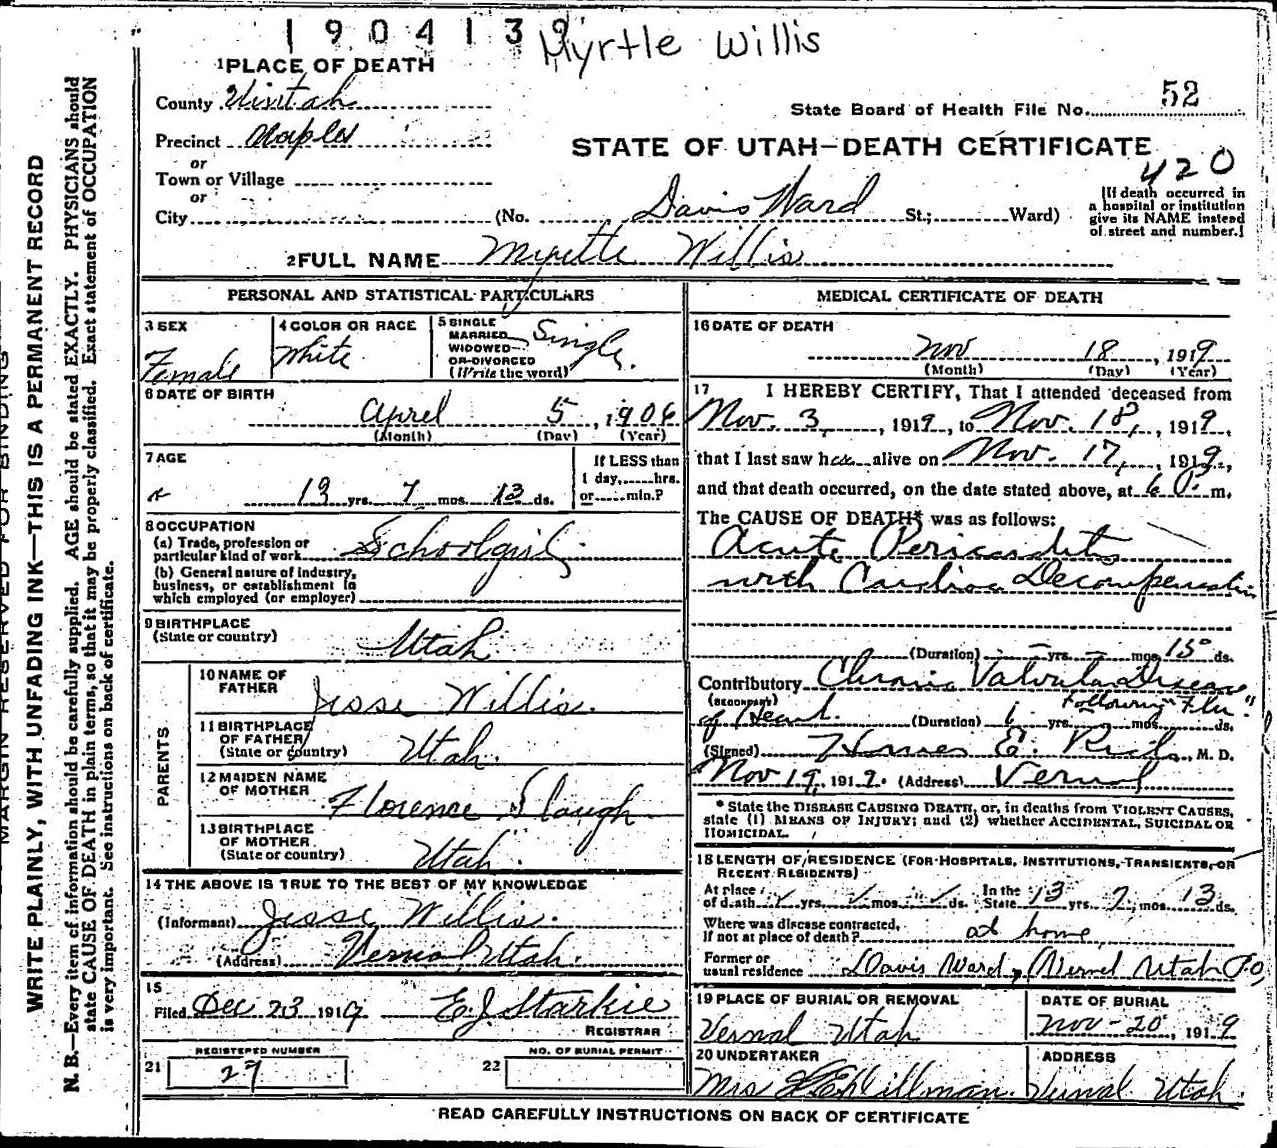 1904139
Myrtle Willis
1 PLACE OF DEATH
County Uintah
State Board of Health File No. 52
Precinct Naples
STATE OF UTAH—DEATH CERTIFICATE
or
420
Town or Village
or
City (No. Davis Ward St.; Ward)
[If death occurred in
a hospital or institution
give its NAME instead
of street and number.]
2 FULL NAME Myrtle Willis
PERSONAL AND STATISTICAL PARTICULARS
3 SEX
Female
4 COLOR OR RACE
White
5 SINGLE
MARRIED
WIDOWED
OR DIVORCED
(Write the word)
Single.
6 DATE OF BIRTH
April 5, 1906
(Month) (Day) (Year)
7 AGE
13 yrs. 7 mos. 13 ds.
If LESS than
1 day,......hrs.
or......min.?
8 OCCUPATION
(a) Trade, profession or
particular kind of work Schoolgirl
(b) General nature of industry,
business, or establishment in
which employed (or employer)
9 BIRTHPLACE
(State or country) Utah
PARENTS
10 NAME OF
FATHER Jesse Willis.
11 BIRTHPLACE
OF FATHER
(State or country) Utah.
12 MAIDEN NAME
OF MOTHER Florence Slaugh
13 BIRTHPLACE
OF MOTHER
(State or country) Utah.
14 THE ABOVE IS TRUE TO THE BEST OF MY KNOWLEDGE
(Informant) Jesse Willis.
(Address) Vernal, Utah.
15
Filed Dec 23 1919 E. J. Starkie
REGISTRAR
21 REGISTERED NUMBER
27
22 NO. OF BURIAL PERMIT
MEDICAL CERTIFICATE OF DEATH
16 DATE OF DEATH
Nov 18, 1919
(Month) (Day) (Year)
17 I HEREBY CERTIFY, That I attended deceased from
Nov. 3, 1919, to Nov. 18, 1919,
that I last saw her alive on Nov. 17, 1919,
and that death occurred, on the date stated above, at 6 P. m.
The CAUSE OF DEATH* was as follows:
Acute Pericarditis
with Cardiac Decompensation
(Duration) — yrs. — mos. 15 ds.
Contributory Chronic Valvular Disease
(SECONDARY) Following "Flu."
of Heart. (Duration) 1 yrs. mos. ds.
(Signed) Homer E. Rich, M. D.
Nov 19, 1919. (Address) Vernal
* State the DISEASE CAUSING DEATH, or, in deaths from VIOLENT CAUSES,
state (1) MEANS OF INJURY; and (2) whether ACCIDENTAL, SUICIDAL OR
HOMICIDAL.
18 LENGTH OF RESIDENCE (FOR HOSPITALS, INSTITUTIONS, TRANSIENTS, OR
RECENT RESIDENTS)
At place
of death yrs. mos. ds. In the State 13 yrs. 7 mos. 13 ds.
Where was disease contracted,
if not at place of death? at home
Former or
usual residence Davis Ward, Vernal Utah P.O.
19 PLACE OF BURIAL OR REMOVAL
Vernal Utah
DATE OF BURIAL
Nov-20, 1919
20 UNDERTAKER
Mrs Hillman.
ADDRESS
Vernal Utah.
READ CAREFULLY INSTRUCTIONS ON BACK OF CERTIFICATE
MARGIN RESERVED FOR BINDING
WRITE PLAINLY, WITH UNFADING INK—THIS IS A PERMANENT RECORD
N. B.—Every item of information should be carefully supplied. AGE should be stated EXACTLY. PHYSICIANS should
state CAUSE OF DEATH in plain terms, so that it may be properly classified. Exact statement of OCCUPATION
is very important. See instructions on back of certificate.